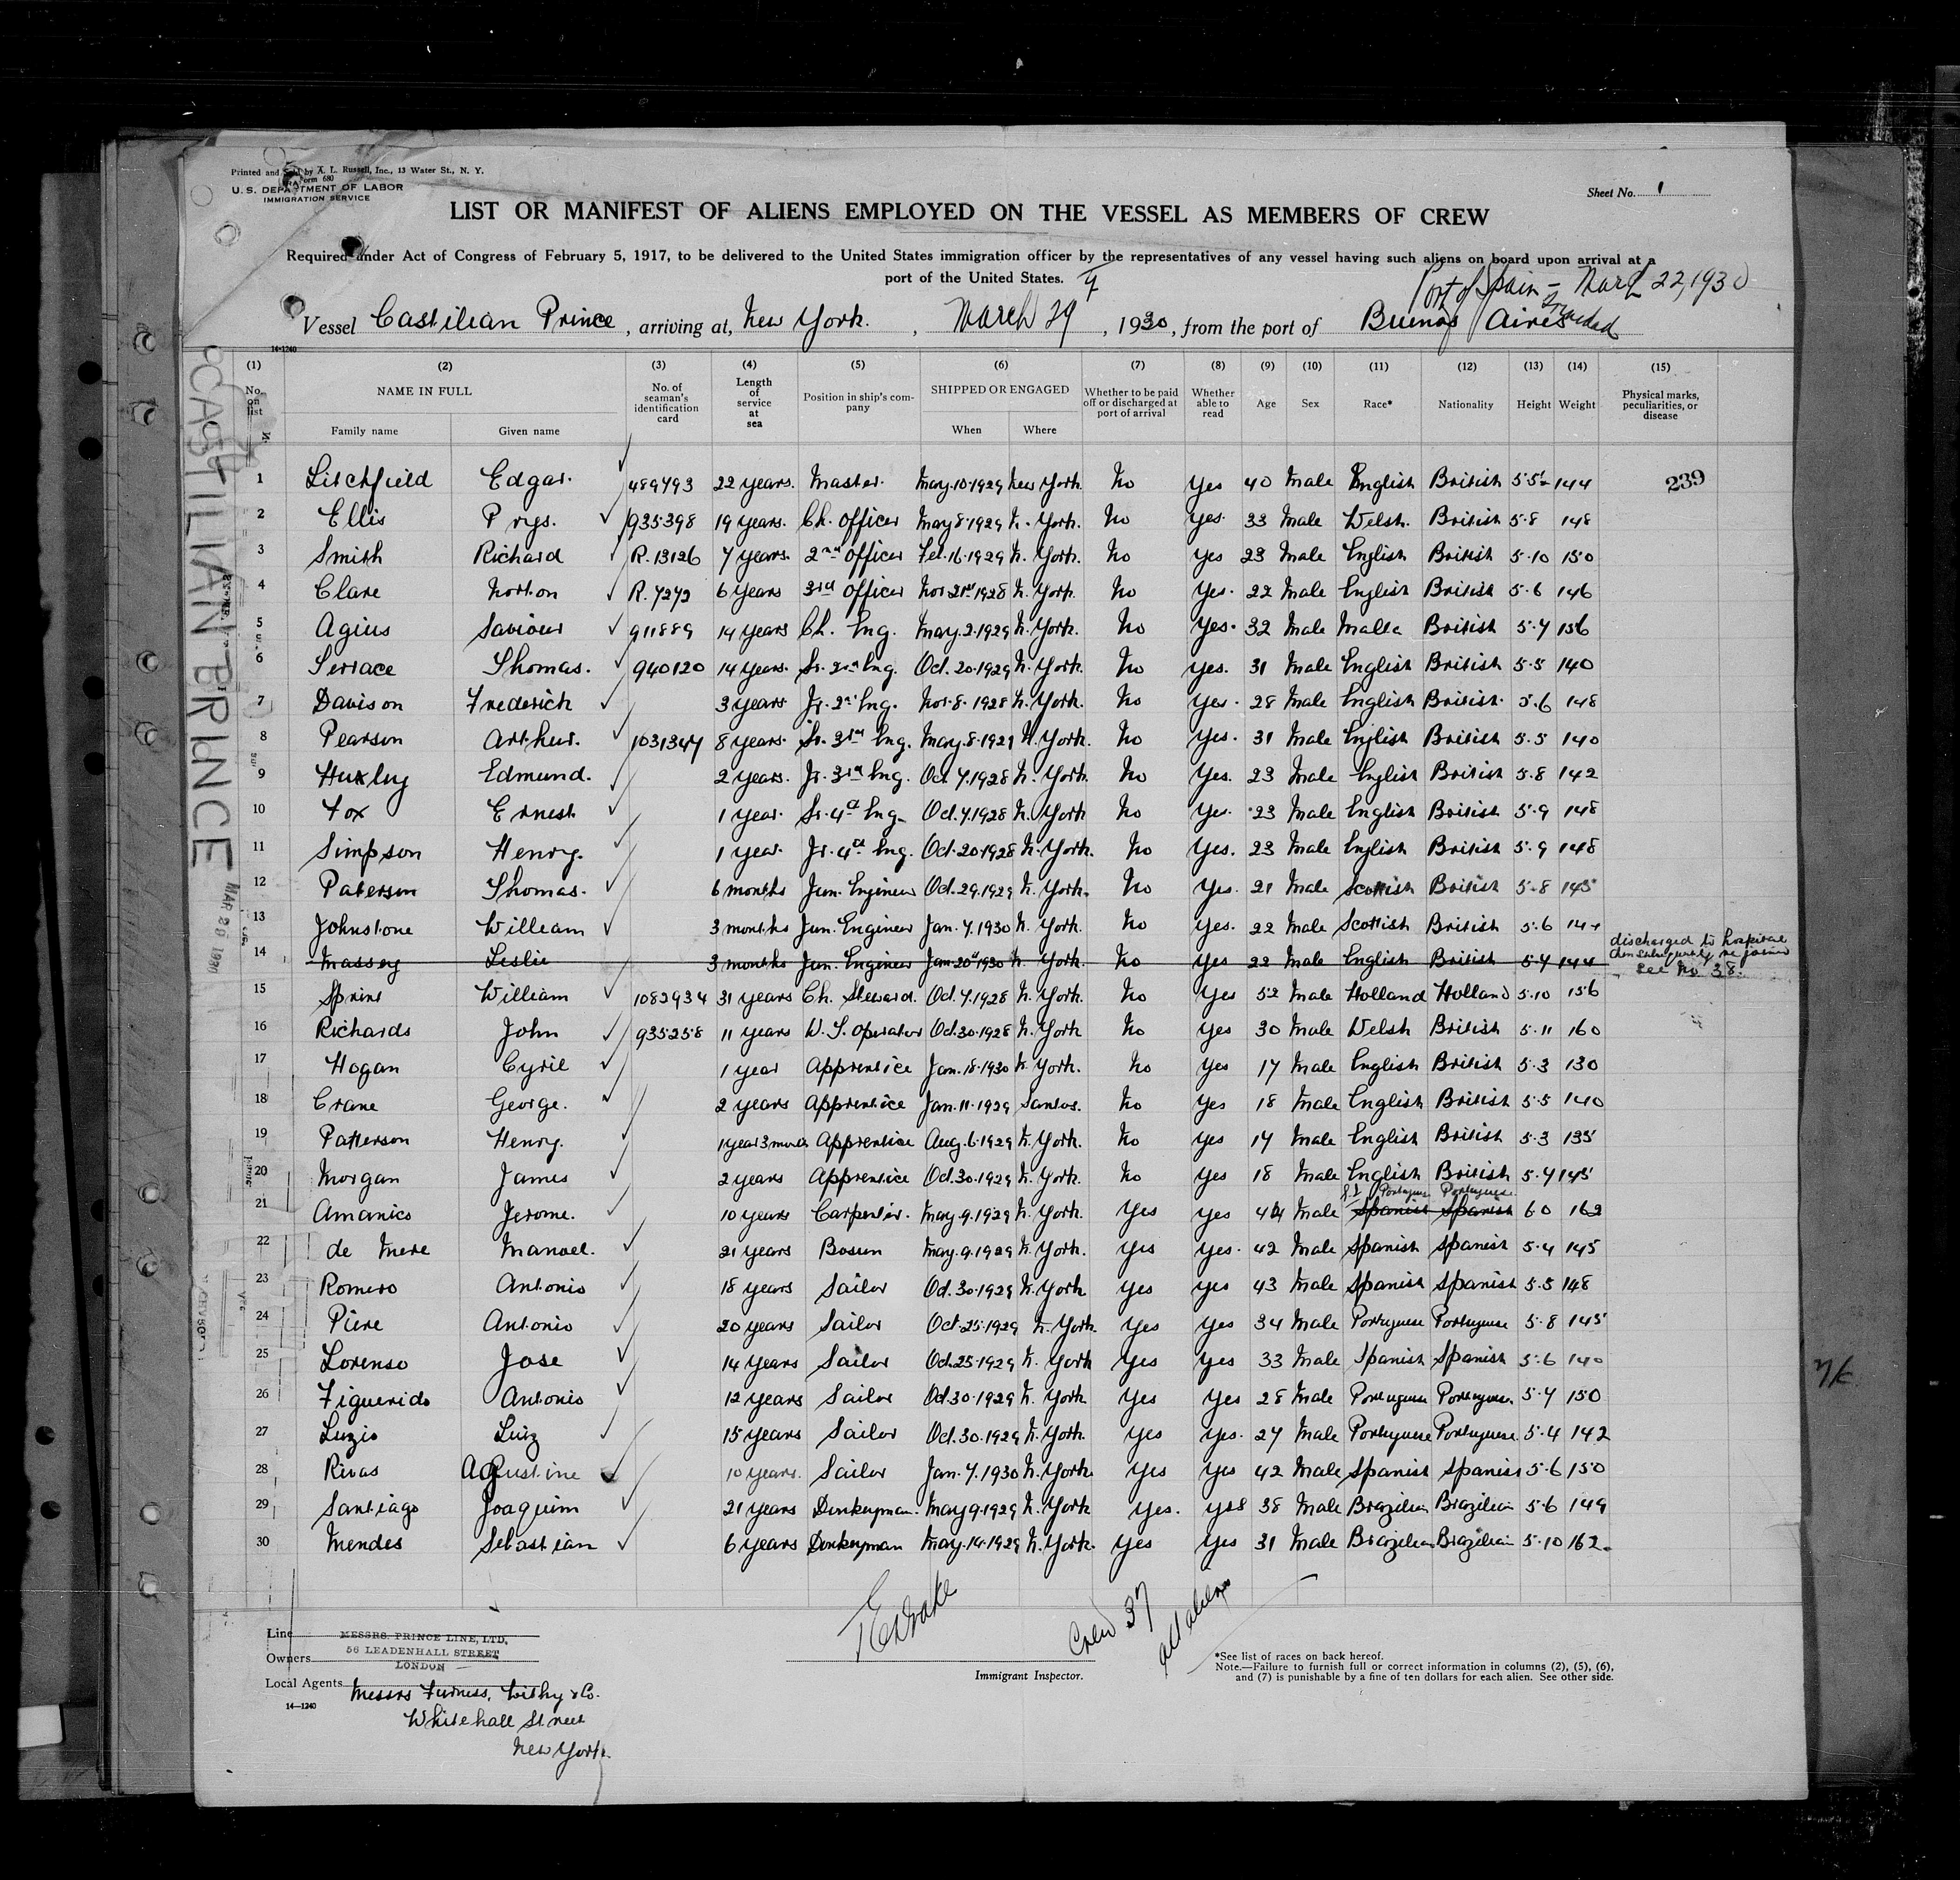 Printed and Sold by A. L. Russell, Inc., 13 Water St., N. Y.
Form 680
U. S. DEPARTMENT OF LABOR
IMMIGRATION SERVICE
Sheet No. 1
LIST OR MANIFEST OF ALIENS EMPLOYED ON THE VESSEL AS MEMBERS OF CREW
Required under Act of Congress of February 5, 1917, to be delivered to the United States immigration officer by the representatives of any vessel having such aliens on board upon arrival at a
port of the United States.
Port of Spain - March 22, 1930
Trinidad
Vessel Castilian Prince, arriving at, New York. , March 29, 1930, from the port of Buenos Aires
14-1240
(1) (2) (3) (4) (5) (6) (7) (8) (9) (10) (11) (12) (13) (14) (15)
No. on list NAME IN FULL Family name Given name No. of seaman's identification card Length of service at sea Position in ship's company SHIPPED OR ENGAGED When Where Whether to be paid off or discharged at port of arrival Whether able to read Age Sex Race* Nationality Height Weight Physical marks, peculiarities, or disease
1 Litchfield Edgar. 489793 22 years. Master. May.10.1929 New York. No Yes 40 Male English British 5.5½ 144 239
2 Ellis Prys. 935398 19 years. Ch. Officer May 8.1929 N. York. No Yes. 33 Male Welsh. British 5.8 148
3 Smith Richard R.13126 7 years. 2nd Officer Feb.16.1929 N. York. No Yes 23 Male English British 5.10 150
4 Clare Norton R.7272 6 years 3rd Officer Nov 21st 1928 N. York. No Yes. 22 Male English British 5.6 146
5 Agius Saviour 911889 14 years Ch. Eng. May.2.1929 N. York. No Yes. 32 Male Malta British 5.7 156
6 Terrace Thomas. 940120 14 years. Sr. 2nd Eng. Oct.20.1929 N. York. No Yes. 31 Male English British 5.5 140
7 Davison Frederick 3 years Jr. 2nd Eng. Nov.8.1928 N. York. No Yes. 28 Male English British. 5.6 148
8 Pearson Arthur. 1031347 8 years. Sr. 3rd Eng. May.8.1929 N. York. No Yes. 31 Male English British 5.5 140
9 Huxley Edmund. 2 years. Jr. 3rd Eng. Oct 7.1928 N. York. No Yes. 23 Male English British 5.8 142
10 Fox Ernest 1 year. Sr. 4th Eng. Oct.7.1928 N. York No Yes. 23 Male English British 5.9 148
11 Simpson Henry. 1 year. Jr. 4th Eng. Oct.20.1928 N. York. No Yes. 23 Male English British 5.9 148
12 Paterson Thomas. 6 months Jun. Engineer Oct.29.1929 N. York. No Yes. 21 Male Scottish British 5.8 145
13 Johnstone William 3 months Jun. Engineer Jan.7.1930 N. York. No Yes. 22 Male Scottish British 5.6 144
14 Massey Leslie 3 months Jun. Engineer Jan.20th 1930 N. York. No Yes 22 Male English British 5.7 144 discharged to hospital
then subsequently rejoined
See No 38.
15 Sprint William 1082934 31 years Ch. Steward. Oct.7.1928 N. York. No Yes 52 Male Holland Holland 5.10 156
16 Richards John 935258 11 years W. T. operator Oct.30.1928 N. York. No Yes 30 Male Welsh British 5.11 160
17 Hogan Cyril 1 year Apprentice Jan.18.1930 N. York. No Yes 17 Male English British 5.3 130
18 Crane George. 2 years Apprentice Jan.11.1929 Santos. No Yes 18 Male English British 5.5 140
19 Patterson Henry. 1 year 3 months Apprentice Aug.6.1929 N. York. No Yes 17 Male English British 5.3 135
20 Morgan James 2 years Apprentice Oct.30.1929 N. York. No Yes 18 Male English British 5.7 145
Portuguese Portuguese
21 Amanico Jerome. 10 years Carpenter. May.9.1929 N. York. Yes Yes 44 Male Spanish Spanish 6 0 162
22 de Mere Manoel. 21 years Bosun May.9.1929 N. York. Yes Yes. 42 Male Spanish Spanish 5.4 145
23 Romero Antonio 18 years Sailor Oct.30.1929 N. York Yes Yes 43 Male Spanish Spanish 5.5 148
24 Piere Antonio 20 years Sailor Oct.25.1929 N. York. Yes Yes 34 Male Portuguese Portuguese 5.8 145
25 Lorenso Jose 14 years Sailor Oct.25.1929 N. York Yes Yes 33 Male Spanish Spanish 5.6 140
26 Figuerido Antonio 12 years Sailor Oct.30.1929 N. York Yes Yes 28 Male Portuguese Portuguese. 5.7 150
27 Luzio Luiz 15 years Sailor Oct.30.1929 N. York. Yes Yes. 27 Male Portuguese Portuguese. 5.4 142
28 Rivas Agustine 10 years. Sailor Jan.7.1930 N. York. Yes Yes 42 Male Spanish Spanish 5.6 150
29 Santiago Joaquim 21 years Donkeyman. May 9.1929 N. York Yes. Yes 38 Male Brazilian Brazilian 5.6 149
30 Mendes Sebastian 6 years Donkeyman May.14.1929 N. York. Yes Yes 31 Male Brazilian Brazilian 5.10 162.
CASTILIAN PRINCE
Crew 37
all aliens
Line MESSRS. PRINCE LINE, LTD.
56 LEADENHALL STREET
Owners
LONDON
Immigrant Inspector.
Local Agents Messrs Furness, Withy & Co.
Whitehall Street
New York.
14-1240
*See list of races on back hereof.
Note.—Failure to furnish full or correct information in columns (2), (5), (6),
and (7) is punishable by a fine of ten dollars for each alien. See other side.